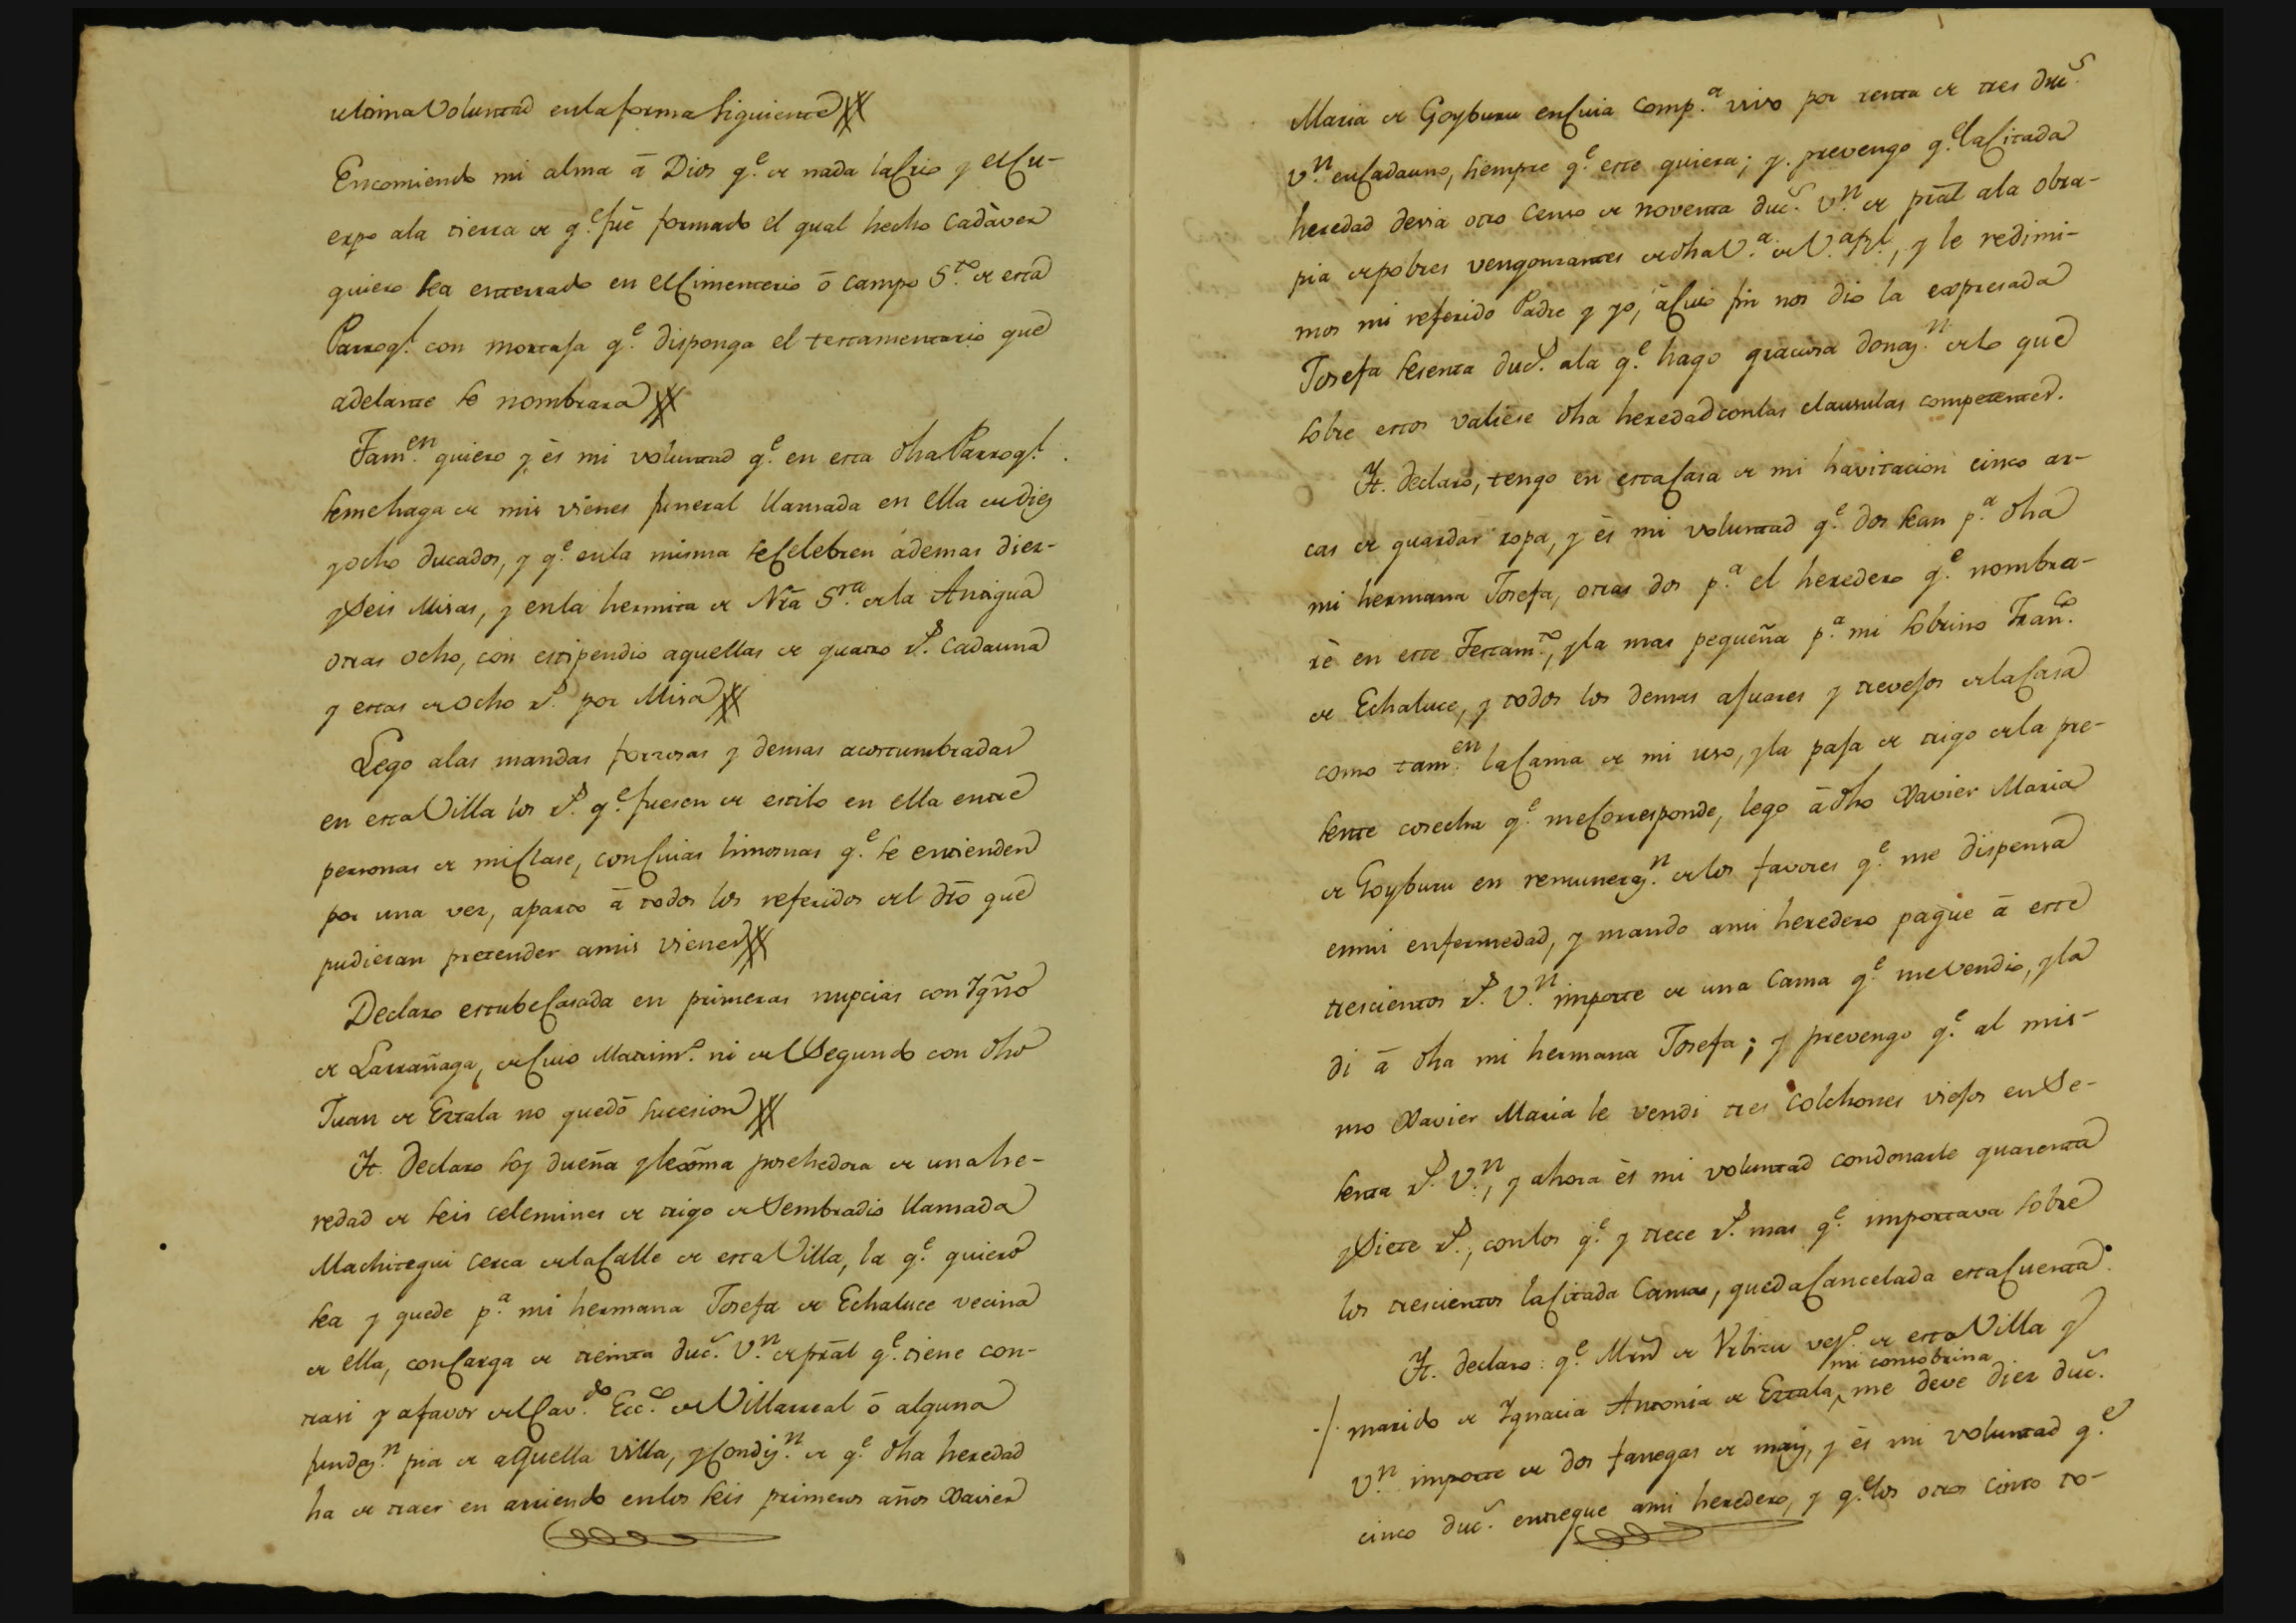 ultima Voluntad en la forma siguiente
Encomiendo mi alma á Dios q.e de nada la Crio y el Cu-
erpo ala tierra de q.e fué formado el qual hecho Cadàver
quiero sea enterrado en el Cimenterio ó Campo S.to de esta
Parroq.l con mortaja q.e disponga el testamentario que
adelante se nombrara
Tam.en quiero y és mi voluntad q.e en esta dha Parroq.l
se me haga de mis vienes funeral llamada en ella de diez
y ocho ducados, y q.e en la misma se Celebren ádemas diez-
y Seis Misas, y en la hermita de Nrã S.ra de la Antigua
otras ocho, con estipendio aquellas de quatro r.s cada una
y estas de ocho r.s por Misa
Lego alas mandas forzosas y demas acostumbradas
en esta Villa los r.s q.e fuesen de estilo en ella entre
personas de mi Clase, con Cuias limosnas q.e se entienden
por una vez, aparto á todos los referidos del drõ que
pudieran pretender a mis vienes
Declaro estube Casada en primeras nupcias con Ygño
de Larrañaga, de Cuio Matrim.o ni del Segundo con dho
Juan de Eztala no quedó sucesion
Yt. Declaro soy dueña y lexma poshedora de una he-
redad de seis celemines de trigo de Sembradio llamada
Machitegui cerca de la Calle de esta Villa, la q.e quiero
sea y quede p.a mi hermana Josefa de Echaluce vecina
de ella, con Carga de treinta duc.s V.n de prãl q.e tiene con-
trasi y afavor del Cav.do Ecc.co de Villarreal ó alguna
fundaz.n pia de aquella Villa, y Condiz.n de q.e dha heredad
ha de traer en arriendo en los seis primeros años Xavier
Maria de Goyburu en Cuia Comp.a vivo por renta de tres duc.s
V.n en Cada uno, siempre q.e este quiera; y prevengo q.e la Citada
heredad devia otro Censo de noventa duc.s V.n de prãl ala obra-
pia de pobres vergonzantes de dha V.a de V.a R.l, y le redimi-
mos mi referido Padre y yo, á Cuio fin nos dio la expresada
Josefa sesenta duc.s ala q.e hago graciosa donaz.n de lo que
sobre estos valiese dha heredad con las clausulas competentes.
Yt. declaro, tengo en esta Casa de mi havitacion cinco ar-
cas de guardar ropa, y és mi voluntad q.e dos sean p.a dha
mi hermana Josefa, otras dos p.a el heredero q.e nombra-
rè en este Testam.to, y la mas pequeña p.a mi sobrino Fran.co
de Echaluce, y todos los demas ajuares y trevejos de la Casa
como tam.en la Cama de mi uso, y la paja de trigo de la pre-
sente cosecha q.e me Corresponde, lego á dho Xavier Maria
de Goyburu en remuneraz.n de los favores q.e me dispensa
en mi enfermedad, y mando a mi heredero pague á este
trescientos r.s V.n importe de una Cama q.e me vendio, y la
di á dha mi hermana Josefa; y prevengo q.e al mis-
mo Xavier Maria le vendi tres Colchones viejos en Se-
senta r.s V.n, y ahora és mi voluntad condonarle quarenta
y Siete r.s, con los q.e y trece r.s mas q.e importava sobre
los trescientos la Citada Cama, queda Cancelada esta Cuenta.
Yt. declaro: q.e Mrñ de Urbitu vez.o de esta Villa y
mi consobrina
marido de Ygnacia Antonia de Eztala, me deve diez duc.s
V.n importe de dos fanegas de maiz, y és mi voluntad q.e
cinco duc.s entregue a mi heredero, y q.e los otros cinco to-